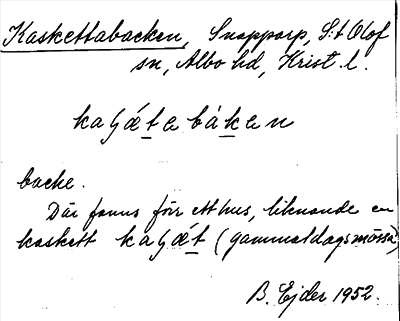 Kaskettabacken, Snapparp, S:t Olof
sn, Albo hd, Krist. l.
kaʂǽte báken
backe.
Där fanns förr ett hus, liknande en
kaskett kaʂǽt (gammaldags mössa)
B. Ejder 1952.